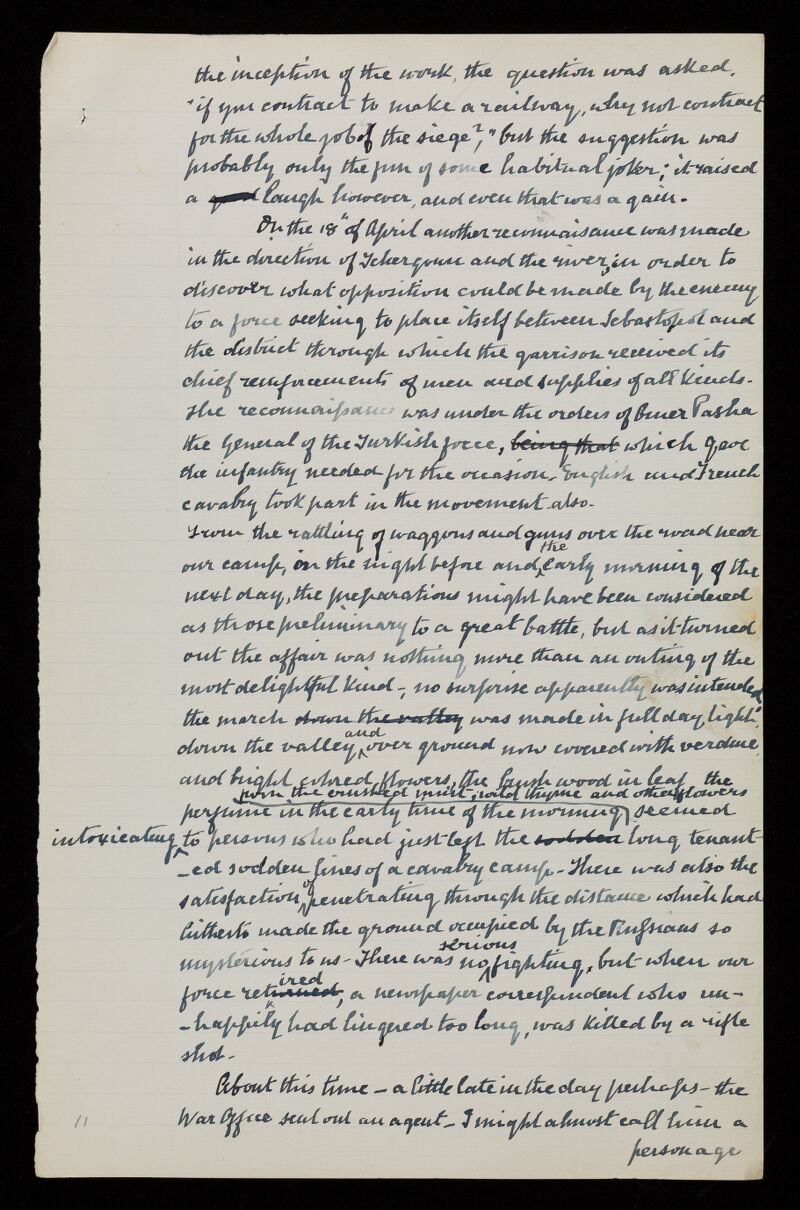 the inception of the work, the question was asked,
"if you contract to make a railway, why not contract
for the whole job of the siege?," but the suggestion was
probably only the fun of some habitual joker; it raised
a good laugh however, and even that was a gain.
On the 18th of April another reconnaisance was made
in the direction of Tchergoun and the river, in order to
discover what opposition could be made by the enemy
to a force seeking to place itself between Sebastopol and
the district through which the garrison received its
chief reinforcements of men and supplies of all kinds.
The reconnaissance was under the orders of Omer Pasha
the General of the Turkish force, being that which gave
the infantry needed for the occasion. English and French
cavalry took part in the movement also.
From the rattling of waggons and guns over the road near
our camp, on the night before and the early morning of the
next day, the preparations might have been considered
as those preliminary to a great battle, but as it turned
out the affair was nothing more than an outing of the
most delightful kind -, no surprise apparently was intended
the march down the valley was made in full day light:
down the valley and over ground now covered with verdure,
and bright colored flowers, the brush wood in leaf, the
from the crushed mint, wild thyme and other flowers
perfume in the early time of the morning, seemed
intoxicating to persons who had just left the sodden long tenant-
-ed sodden lines of a cavalry camp - There was also the
satisfaction of penetrating through the distance which had
hitherto made the ground occupied by the Russians so
mysterious to us - There was no serious fighting, but when our
force returned ired, a newspaper correspondent who un-
-happily had lingered too long, was killed by a rifle
shot -
About this time - a little late in the day perhaps - the
War Office sent out an agent - I might almost call him a
personage
11